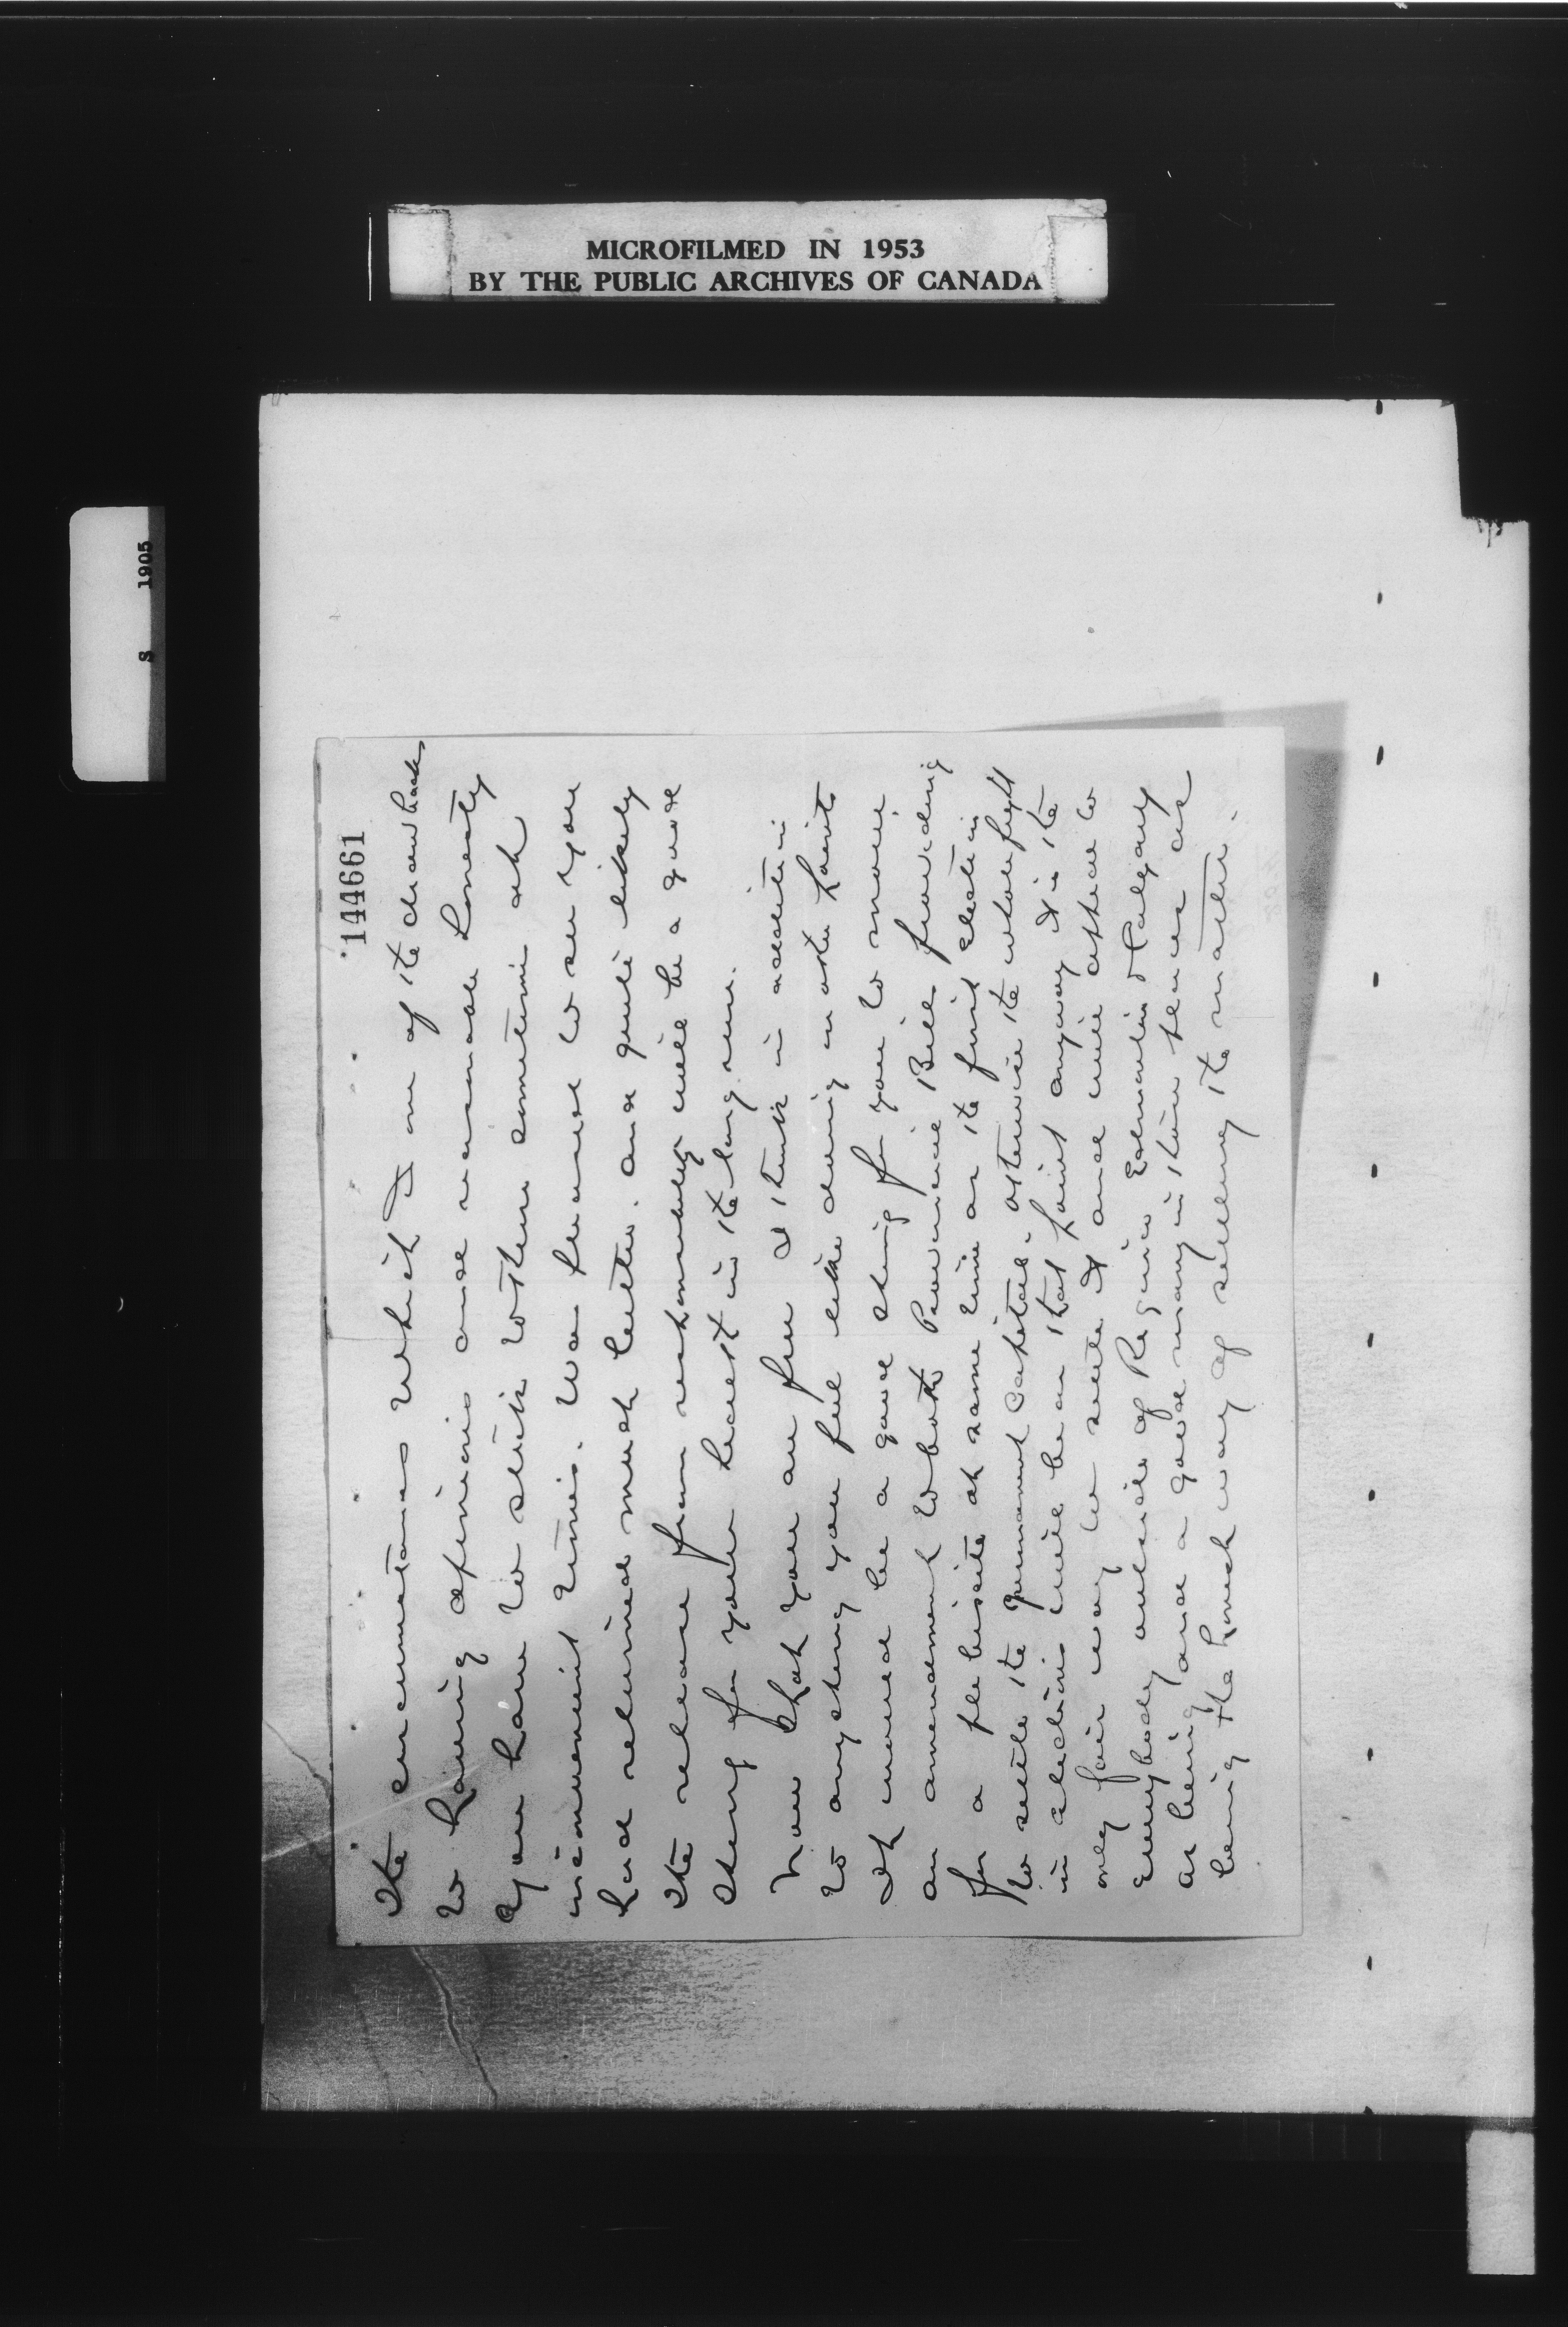 MICROFILMED IN 1953
BY THE PUBLIC ARCHIVES OF CANADA
S 1905
144661
the circumstances which I one of the drawbacks
to having opinions and reasonable honesty
you have to stick to them sometimes at
inconvenient times. Was pleased to see you
had returned much better. and quite likely
the release from responsibility will be a good
thing for your health in the long run.
Now that you are free I think in addition
to anything you feel like doing on other points
It would be a good thing for you to move
an amendment to both Provincial Bills providing
for a plebiscite at same time as the first election
to settle the permanent Capital. otherwise the whole fight
in elections will be on that point anyway & is the
only fair way to settle it and will appeal to
Everybody outside of Regina Edmonton & Calgary
as being and a good many in their places as
being the honest way of settling the matter.